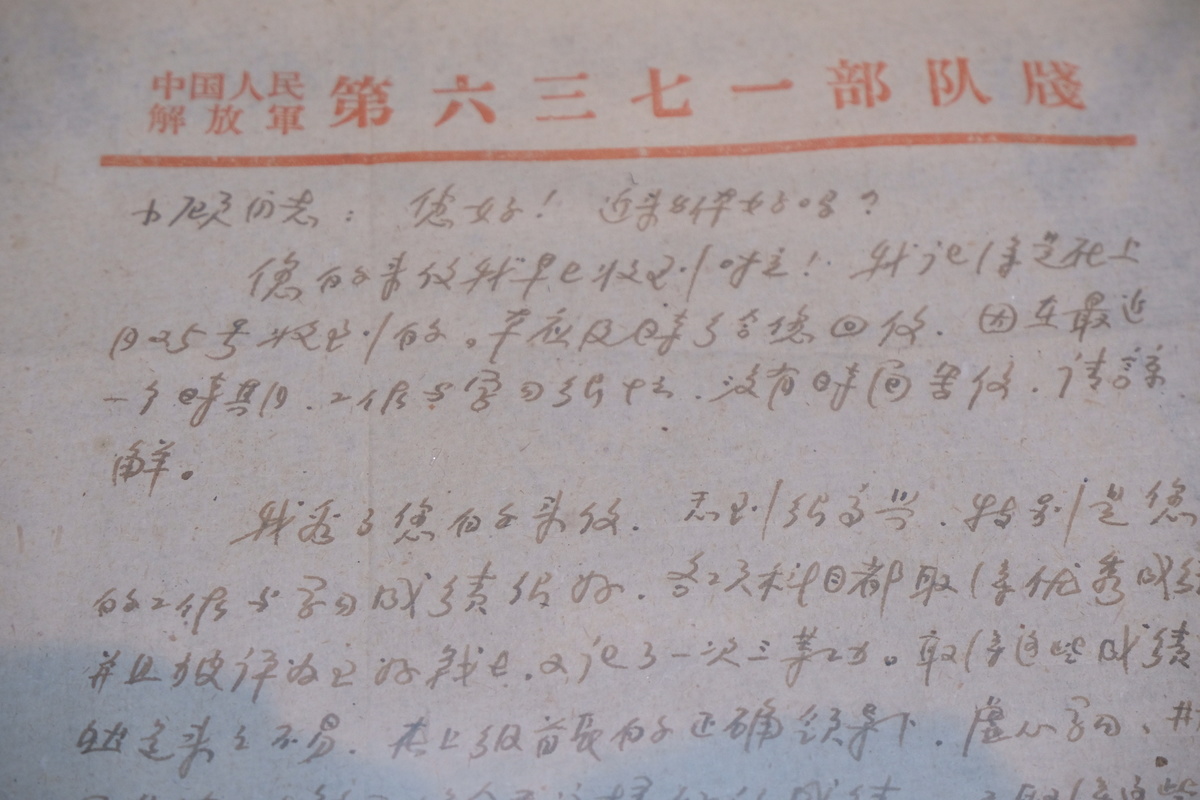 中国人民解放軍 第六三七一部队牋
小顾同志：您好！近来身体好吗？
您的来信我早已收到，请注意！我记得是在上
月25号收到的。早应及时给您回信．因在最近
一个时期．工作与学习很忙．没有时间写信．请諒
解。
我看了您的来信．感到很高兴．特别是您
的工作与学习成绩很好．各项科目都取得优秀成绩
并且被评为五好战士．又记了一次三等功。取得这些成绩
是来之不易．在上级首長的正确领导下．虚心学习、